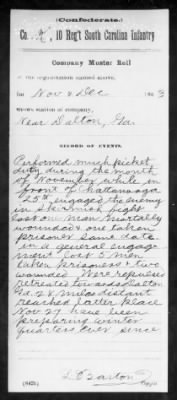 (Confederate.)
Co. K, 10 Reg't South Carolina Infantry
Company Muster Roll
of the organization named above,
for Nov & Dec, 1863
Station of company,
Near Dalton, Ga.
RECORD OF EVENTS.
Performed much picket
duty during the month
of November while in
front of Chattanooga
25th engaged the enemy
in skirmish fight
lost one man mortally
wounded & one taken
prisoner same date.
in a general engage
ment lost 5 men
taken prisoners & two
wounded. Were repulsed
retreated towards Dalton
Ga. 28 miles distant
reached latter place
Nov 27 have been
preparing winter
quarters ever since
(642)
Barton
Copyist